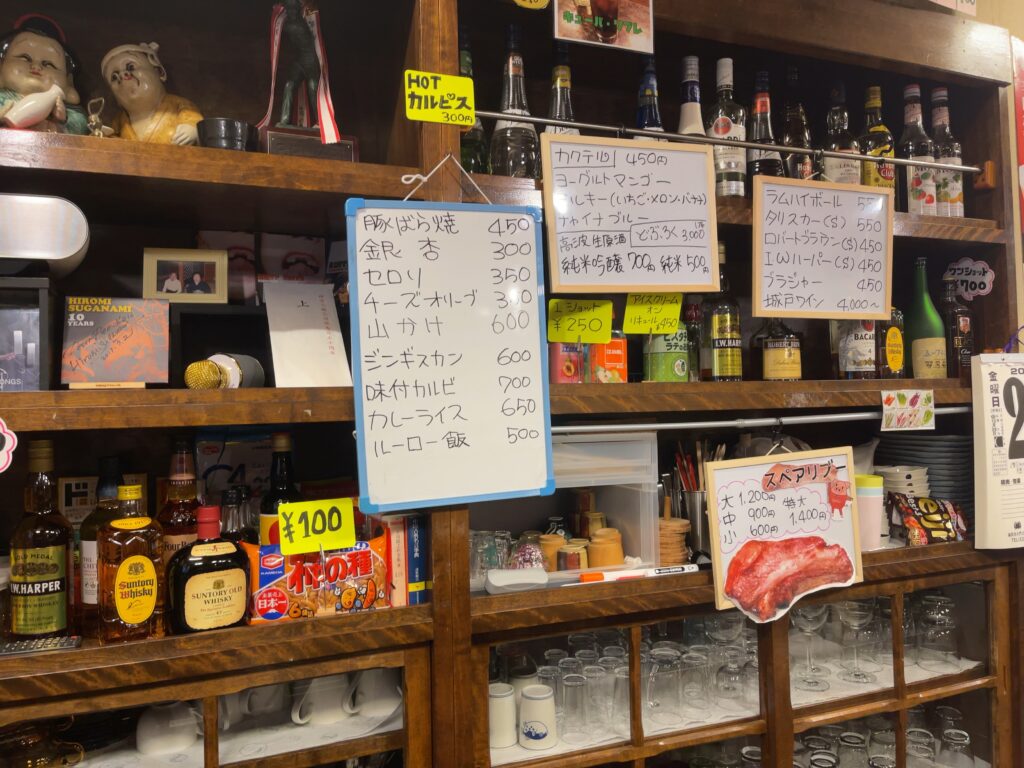 キューバ・リブレ
HOT
カルピス
300円
豚ばら焼 450
金銀杏 300
セロリ 350
チーズオリーブ
山かけ 600
ジンギスカン 600
味付カルビ 700
カレーライス 650
ルーロー飯 500
カクテル 450円
ヨーグルトマンゴー
ルキー(いちご・メロン・バナナ)
チャイナブルー
どぶろく 3,000
生原酒
純米吟醸 700円 純米 500円
ラムハイボール
タリスカー(S) 550
ロバートブラウン(S) 450
I.W.ハーパー(S) 450
ブラジャー 450
城戸ライン 4,000~
ワンショット
¥700
1ショット
¥250
アイスクリーム
オン
リキュール ¥450
HIROMI
SUGANAMI
10
YEARS
上
¥100
柿の種
日本一
I.W.HARPER
GOLD MEDAL
SUNTORY
WHISKY
SUNTORY OLD
WHISKY
スペアリブ
大 1,200円
中 900円
小 600円
特大
1,400円
金曜日
2